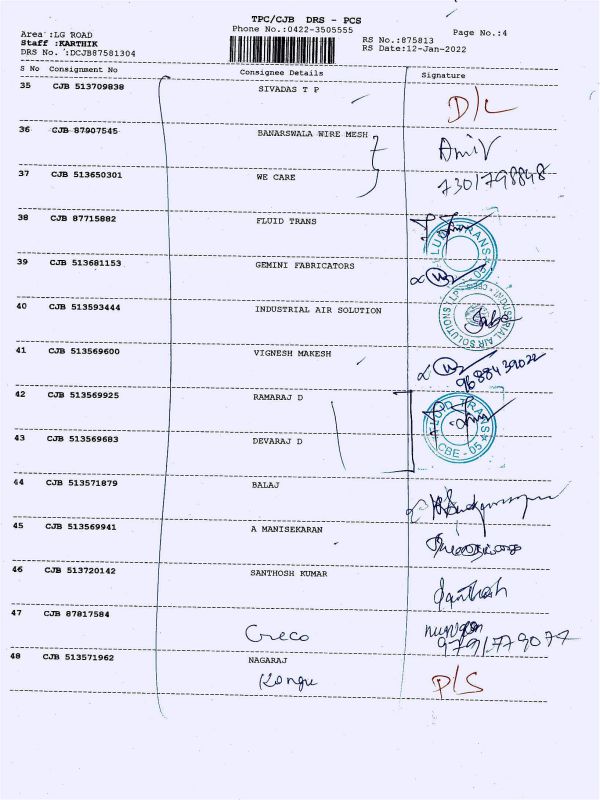 TPC/CJB DRS - PCS
Phone No.:0422-3505555
Page No.:4
Area :LG ROAD
RS No.:875813
Staff :KARTHIK
RS Date:12-Jan-2022
DRS No. :DCJB87581304
S No Consignment No Consignee Details Signature
35 CJB 513709838 SIVADAS T P
D/L
36 CJB 87907545 BANARSWALA WIRE MESH
Amir
37 CJB 513650301 WE CARE
7301798848
38 CJB 87715882 FLUID TRANS
39 CJB 513681153 GEMINI FABRICATORS
40 CJB 513593444 INDUSTRIAL AIR SOLUTION
INDUSTRIAL AIR SOLUTIONS LP
41 CJB 513569600 VIGNESH MAKESH
9688439022
42 CJB 513569925 RAMARAJ D
FLUID TRANS
CBE - 05
43 CJB 513569683 DEVARAJ D
44 CJB 513571879 BALAJ
45 CJB 513569941 A MANISEKARAN
46 CJB 513720142 SANTHOSH KUMAR
Santhosh
47 CJB 87817584
Greco
9791779077
48 CJB 513571962 NAGARAJ
Kongu
P/S